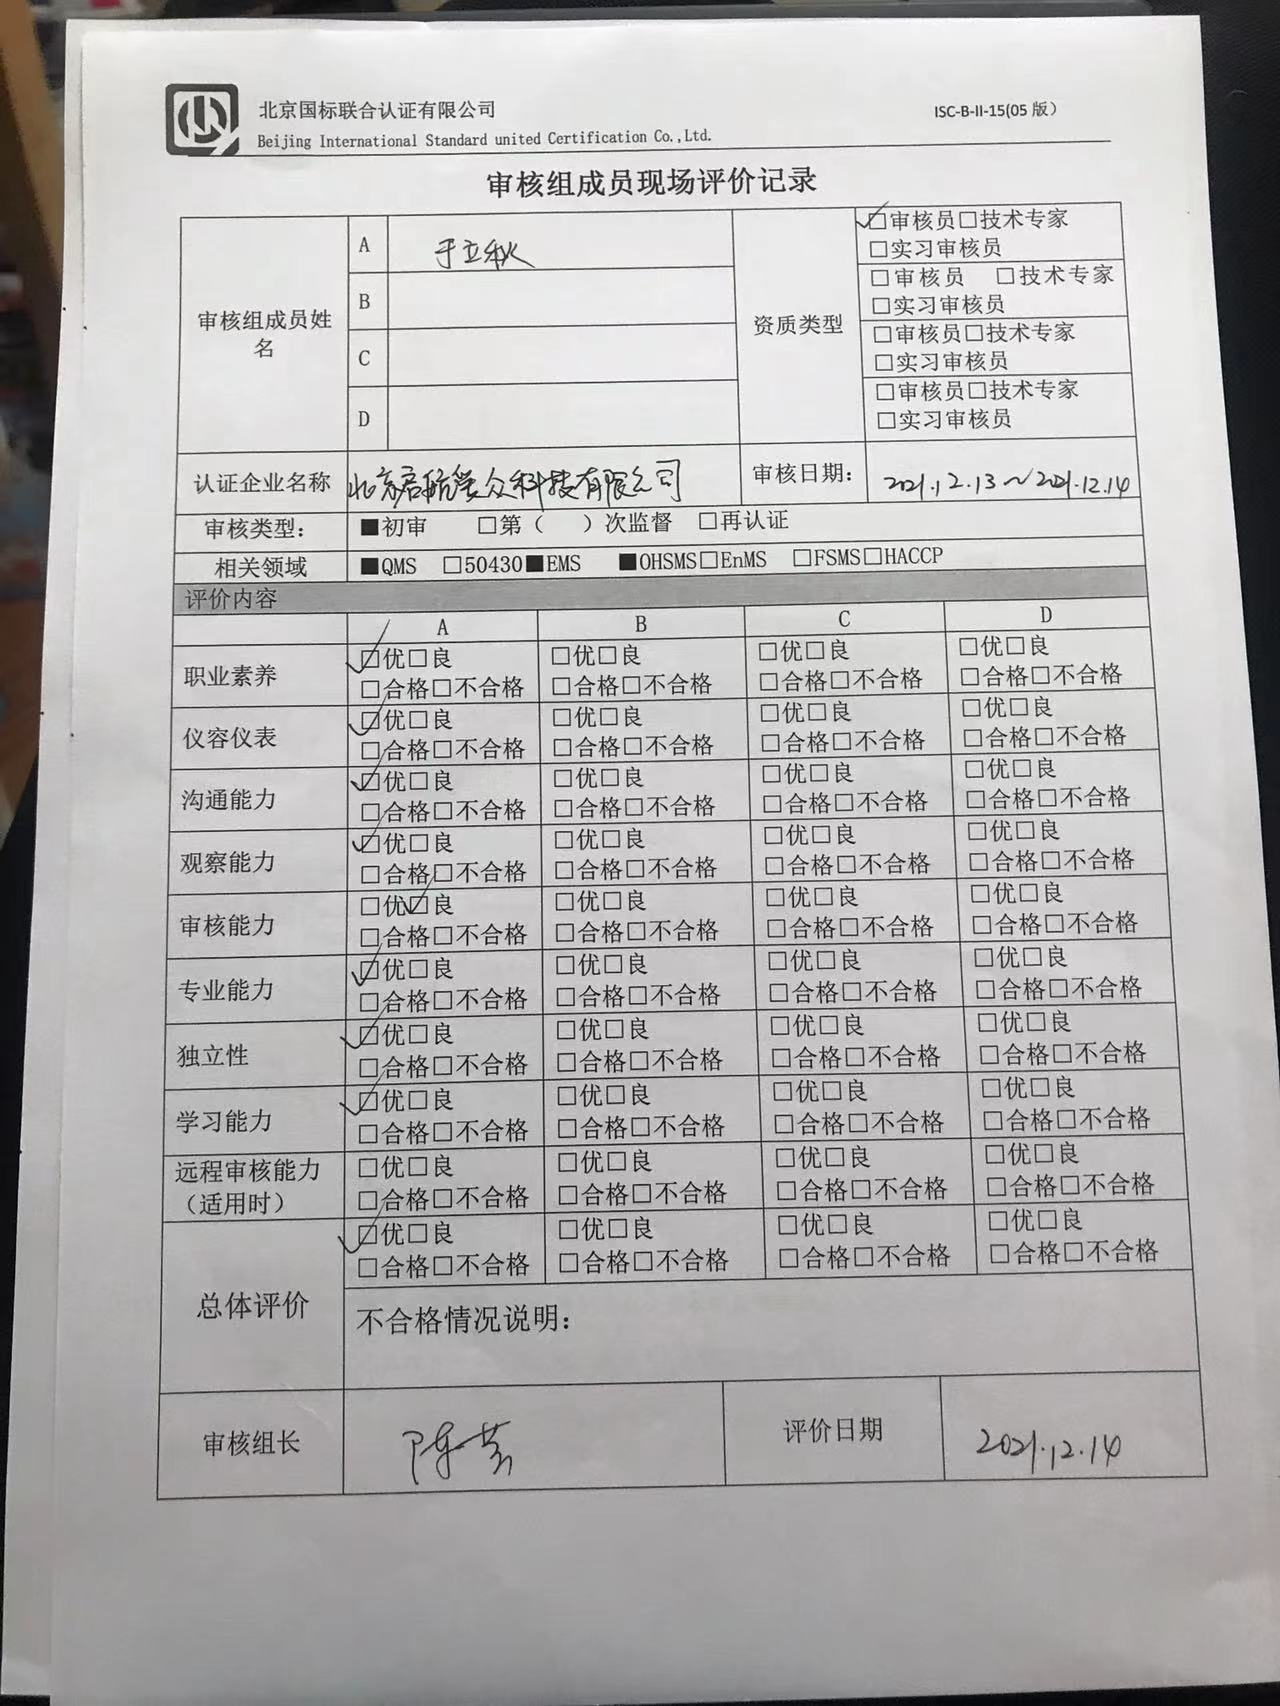 北京国标联合认证有限公司 ISC-B-II-15(05 版）
Beijing International Standard united Certification Co.,Ltd.
审核组成员现场评价记录
审核组成员姓名 A 于立秋 资质类型 ☑审核员□技术专家
□实习审核员
B □审核员 □技术专家
□实习审核员
C □审核员□技术专家
□实习审核员
D □审核员□技术专家
□实习审核员
认证企业名称 北京启航 众科技有限公司 审核日期： 2021.12.13～2021.12.14
审核类型： ■初审 □第（ ）次监督 □再认证
相关领域 ■QMS □50430■EMS ■OHSMS□EnMS □FSMS□HACCP
评价内容
A B C D
职业素养 ☑优□良 □优□良 □优□良 □优□良
□合格□不合格 □合格□不合格 □合格□不合格 □合格□不合格
仪容仪表 ☑优□良 □优□良 □优□良 □优□良
□合格□不合格 □合格□不合格 □合格□不合格 □合格□不合格
沟通能力 ☑优□良 □优□良 □优□良 □优□良
□合格□不合格 □合格□不合格 □合格□不合格 □合格□不合格
观察能力 ☑优□良 □优□良 □优□良 □优□良
□合格□不合格 □合格□不合格 □合格□不合格 □合格□不合格
审核能力 □优☑良 □优□良 □优□良 □优□良
□合格□不合格 □合格□不合格 □合格□不合格 □合格□不合格
专业能力 ☑优□良 □优□良 □优□良 □优□良
□合格□不合格 □合格□不合格 □合格□不合格 □合格□不合格
独立性 ☑优□良 □优□良 □优□良 □优□良
□合格□不合格 □合格□不合格 □合格□不合格 □合格□不合格
学习能力 ☑优□良 □优□良 □优□良 □优□良
□合格□不合格 □合格□不合格 □合格□不合格 □合格□不合格
远程审核能力 □优□良 □优□良 □优□良 □优□良
（适用时） □合格□不合格 □合格□不合格 □合格□不合格 □合格□不合格
总体评价 ☑优□良 □优□良 □优□良 □优□良
□合格□不合格 □合格□不合格 □合格□不合格 □合格□不合格
不合格情况说明：
审核组长 陈芸 评价日期 2021.12.14